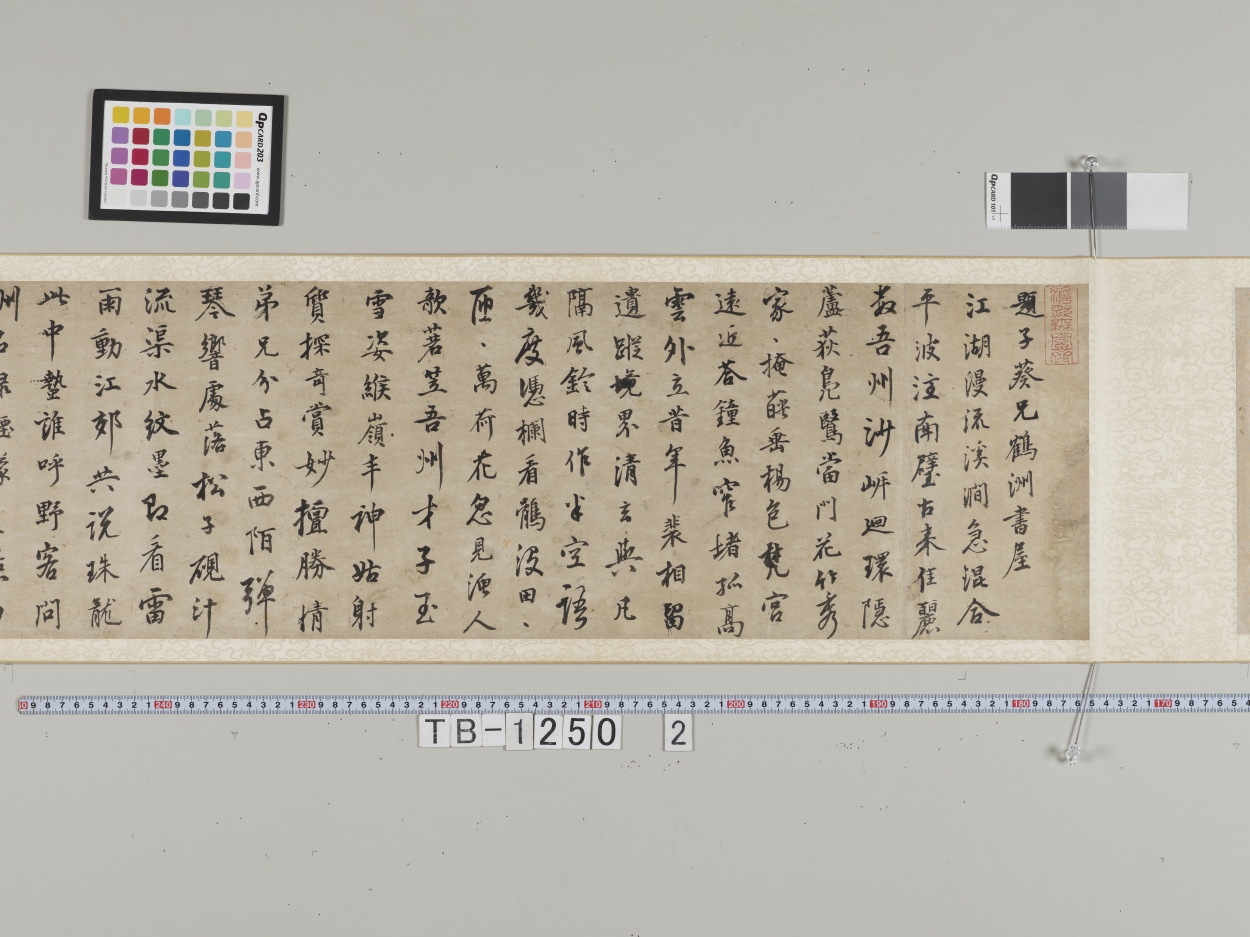 題子葵兄鶴洲書屋
江湖漫流溪澗急混合
平波注南壁古来佳麗
数吾州沙岼迴環隱
蘆荻鳧鷖當門花竹秀
家、掩蔽垂楊色梵宮
遠近荅鐘魚窣堵孤高
雲外立昔年裴相留
遺蹤境界清玄與凡
隔風鈴時作半空語
幾度憑欄看鶴没田、
匝、萬荷花忽見漁人
歌荖笠吾州才子玉
雪姿緱嶺丰神姑射
質探奇賞妙擅勝情
弟兄分占東西陌彈
琴響處落松子硯汁
流渠水紋墨即看雷
雨動江郊共説珠龍
此中蟄誰呼野客問
州
QPCARD 203
www.qpcard.com
QPCARD 101
240 230 220 210 200 190 180 170
TB-1250 2